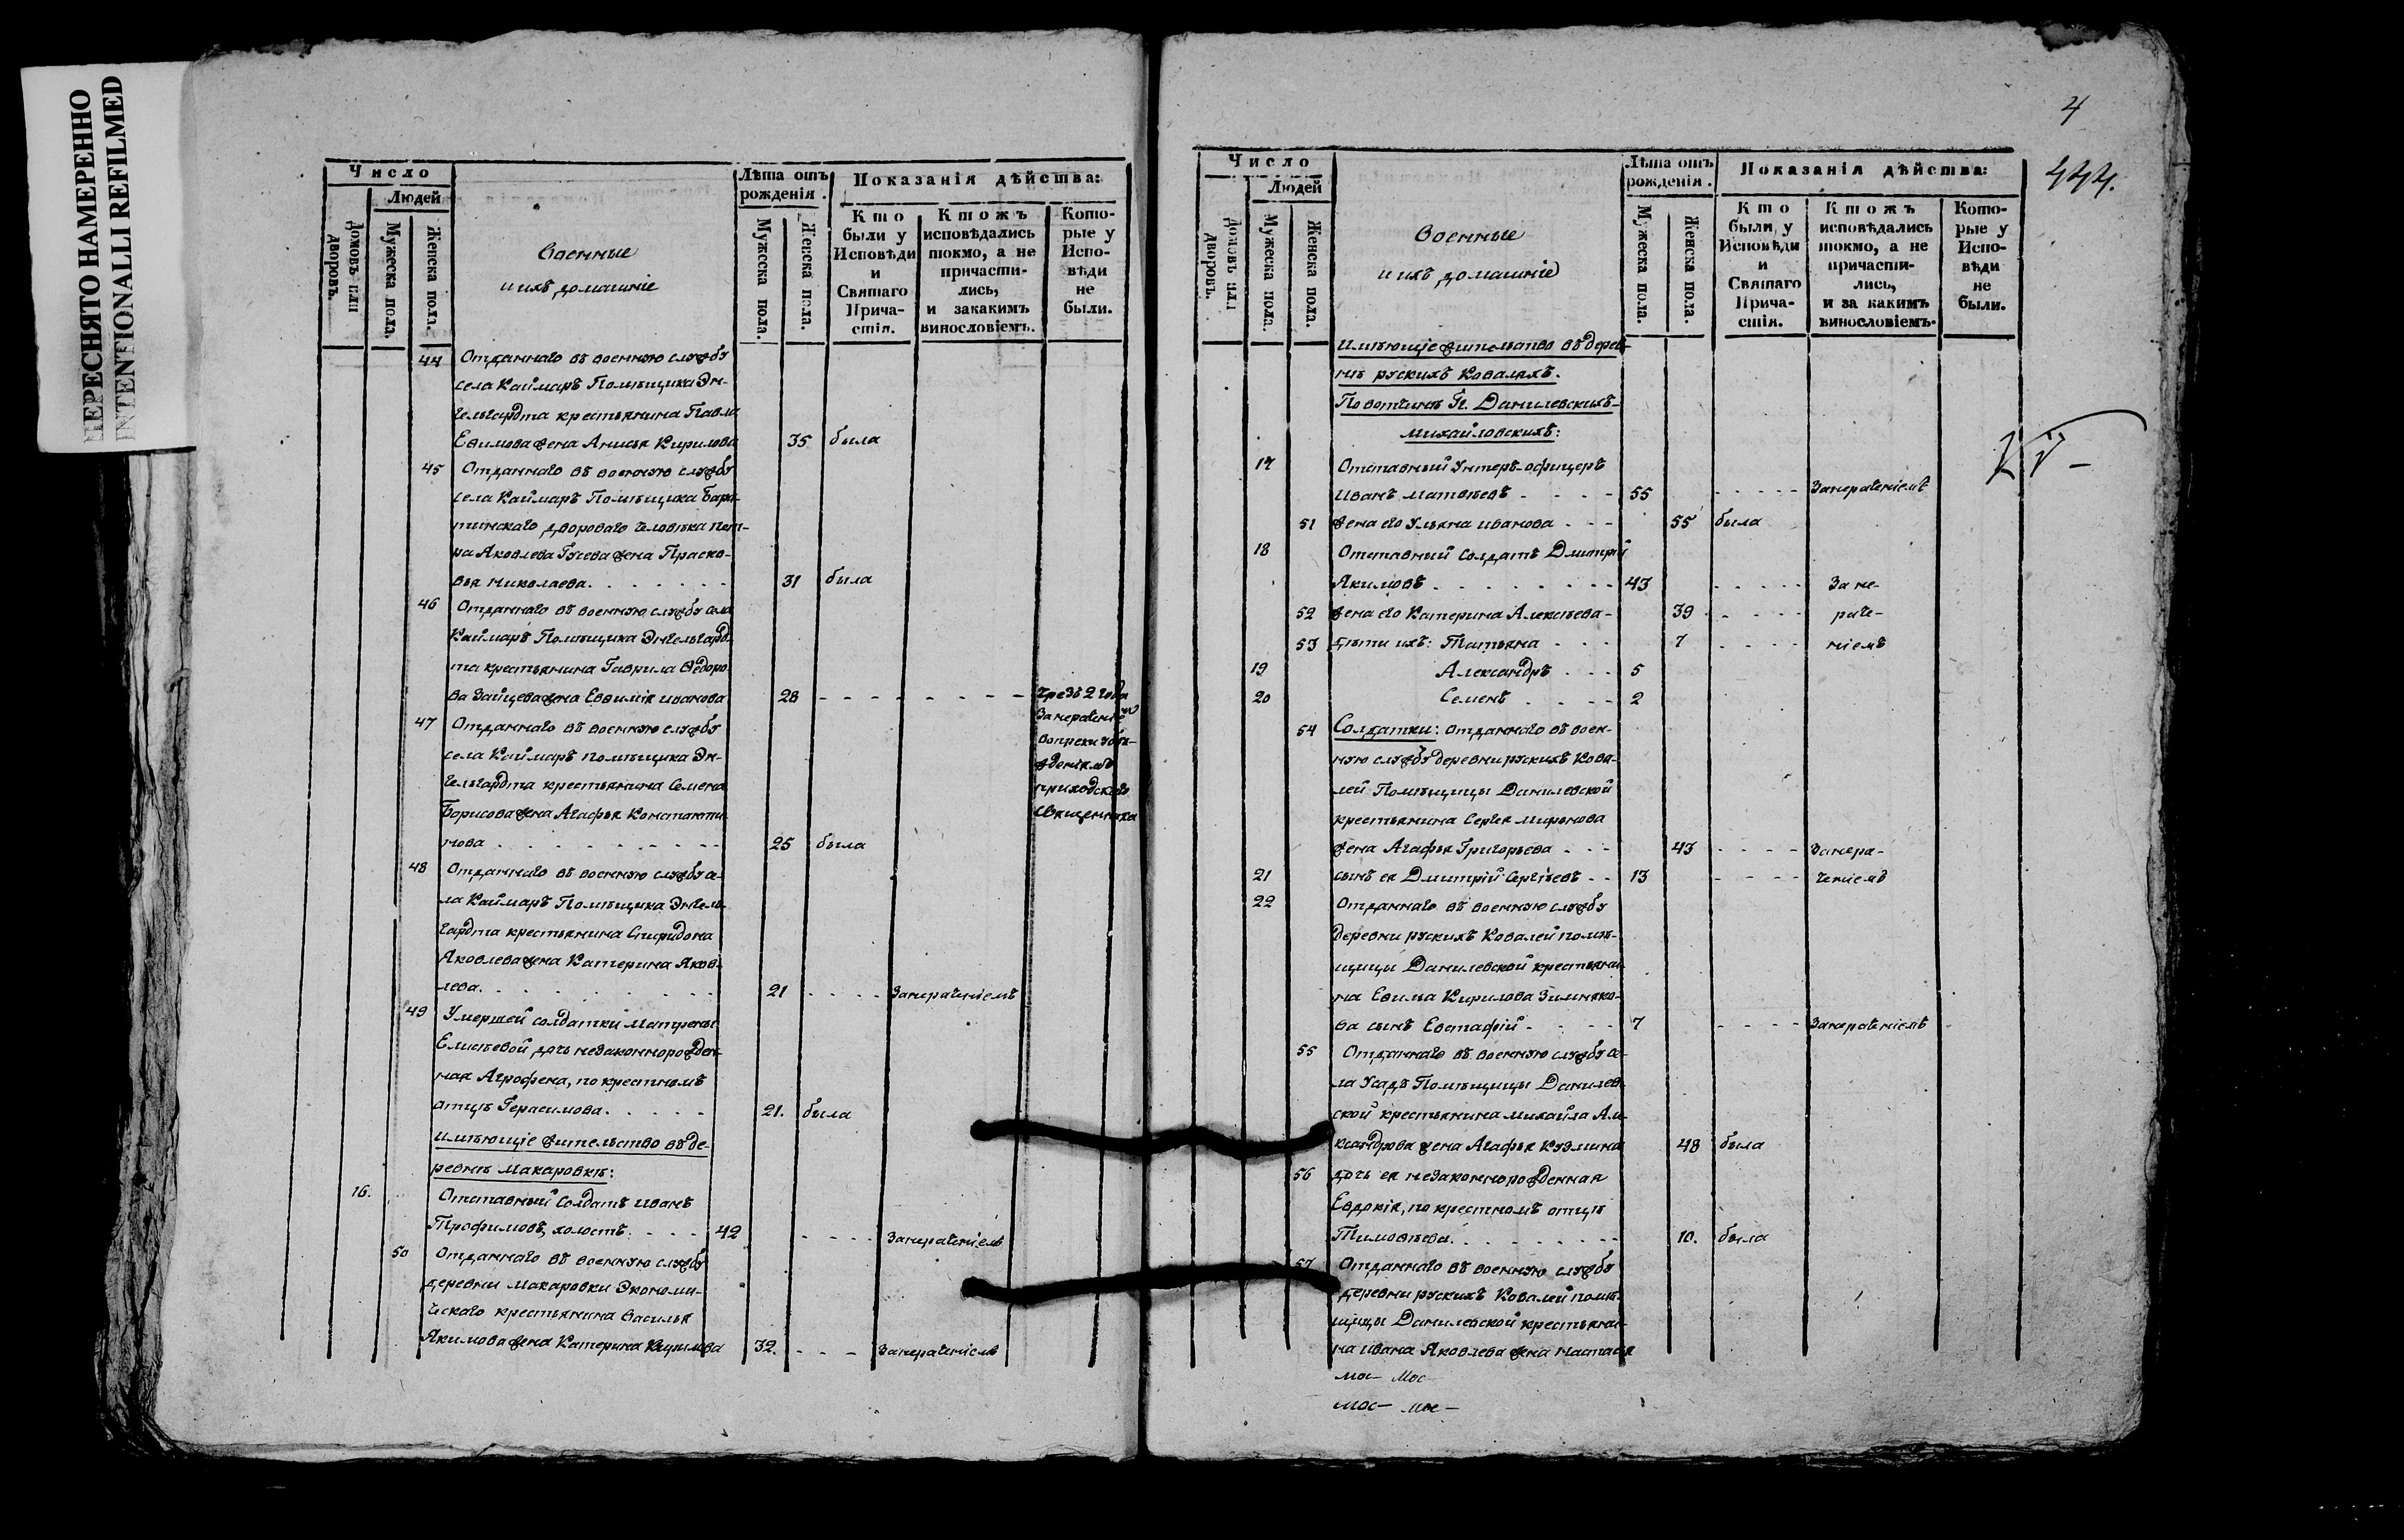 ПЕРЕСНЯТО НАМЕРЕННО
INTENTIONALLI REFILMED
Число
Людей
Домовъ или дворовъ.
Мужеска пола.
Женска пола.
Военные
и ихъ домашніе
Лѣта отъ рожденія.
Мужеска пола.
Женска пола.
Показанія дѣйства:
Кто были у Исповѣди и Святаго Причастія.
Ктожъ исповѣдались токмо, а не причастились, и закакимъ винословіемъ.
Которые у Исповѣди не были.
44 Отданнаго въ военную службу
села Каймаръ Помѣщика Эн-
гельгардта крестьянина Павла
Ефимова жена Анисья Кирилова 35 была
45 Отданнаго въ военную службу
села Каймаръ Помѣщика Бара-
тынскаго двороваго человѣка Пет-
ра Яковлева Гусева жена Праско-
вья Николаева. 31 была
46 Отданнаго въ военную службу села
Каймаръ Помѣщика Энгельгард-
та крестьянина Гаврила Ѳедоро-
ва Зайцева жена Евѳимія Иванова 28 - - - чрезъ 2 года
Занераченіемъ
вопреки убѣ-
жденіямъ
приходскаго
священника
47 Отданнаго въ военную службу
села Каймаръ помѣщика Эн-
гельгардта крестьянина Семена
Борисова жена Агафья Константи-
нова 25 была
48 Отданнаго въ военную службу се-
ла Каймаръ Помѣщика Энгель-
гардта крестьянина Спиридона
Яковлева жена Катерина Яков-
лева. 21 - - - Занераченіемъ
49 Умершей солдатки Матрены
Елисѣевой дочь незаконнорожден-
ная Агрофена, по крестномъ
отцѣ Герасимова. 21. была
Имѣющіе жительство въ де-
ревнѣ Макаровкѣ:
16. Отставный Солдатъ Иванъ
Трофимовъ, холостъ. 42 - - - Занераченіемъ
50 Отданнаго въ военную службу
деревни Макаровки Экономи-
ческаго крестьянина Василья
Якимова жена Катерина Кирилова 32. - - - Занераченіемъ
4
444.
Число
Людей
Домовъ или дворовъ.
Мужеска пола.
Женска пола.
Военные
и ихъ домашніе
Лѣта отъ рожденія.
Мужеска пола.
Женска пола.
Показанія дѣйства:
Кто были у Исповѣди и Святаго Причастія.
Ктожъ исповѣдались токмо, а не причастились, и за какимъ винословіемъ.
Которые у Исповѣди не были.
Имѣющіе жительство въ дерев-
нѣ рускихъ Коваляхъ.
По вотчинѣ Гг. Данилевскихъ-
Михайловскихъ:
17 Отставный Унтеръ-офицеръ
Иванъ Матвѣевъ - - - 55 - - - Занераченіемъ
51 жена его Ульяна Иванова - - - 55 была
18 Отставный Солдатъ Дмитрій
Якимовъ 43 - - - За не-
52 жена его Катерина Алексѣева- 39 - - - раче-
53 дѣти ихъ: Татьяна - - - 7 - - - ніемъ
19 Александръ - - - 5
20 Семенъ - - - 2
54 Солдатки: отданнаго въ воен-
ную службу деревни рускихъ Кова-
лей Помѣщицы Данилевской
крестьянина Сергея Миронова
жена Агафья Григорьева - - - 43 - - - Занера-
21 сынъ ея Дмитрій Сергѣевъ - - 13 - - - ченіемъ
22 Отданнаго въ военную службу
деревни рускихъ Ковалей помѣ-
щицы Данилевской крестьяни-
на Ефима Кирилова Зимняко-
ва сынъ Евстафій - - - 7 - - - Занераченіемъ
55 Отданнаго въ военную службу се-
ла Усадъ Помѣщицы Данилев-
ской крестьянина Михайла Але-
ксандрова жена Агафья Кузмина 48 была
56 дочь ея незаконнорожденная
Евдокія, по крестномъ отцѣ
Тимоѳѣева. 10. была
57 Отданнаго въ военную службу
деревни рускихъ Ковалей помѣ-
щицы Данилевской крестьяни-
на Ивана Яковлева жена Настасья